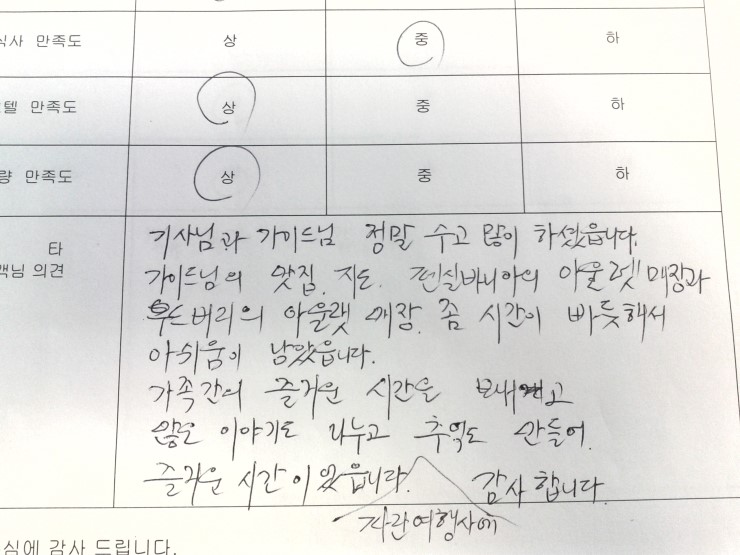 식사 만족도 상 중 하
텔 만족도 상 중 하
량 만족도 상 중 하
타
객님 의견
기사님과 가이드님 정말 수고 많이 하셨읍니다.
가이드님의 맛집. 지도. 펜실바니아의 아울렛 매장과
우드버리의 아울랫 매장. 좀 시간이 빠듯해서
아쉬움이 남았읍니다.
가족간의 즐거운 시간을 보내고
많은 이야기도 나누고 추억도 만들어.
즐거운 시간이였읍니다. 감사합니다.
자란여행사에
심에 감사 드립니다.